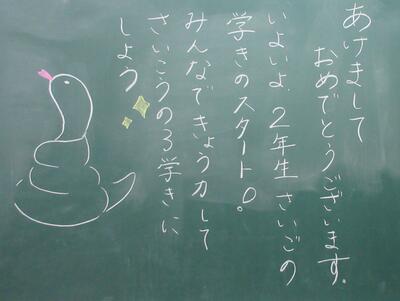 あけまして
おめでとうございます。
いよいよ、2年生さいごの
学きのスタート。
みんなできょう力して
さいこうの3学きに
しよう